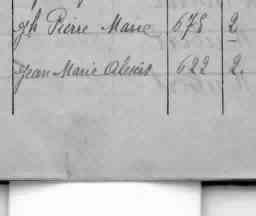 Pierre Marie 678 2
Jean Marie Alexis 622 2.